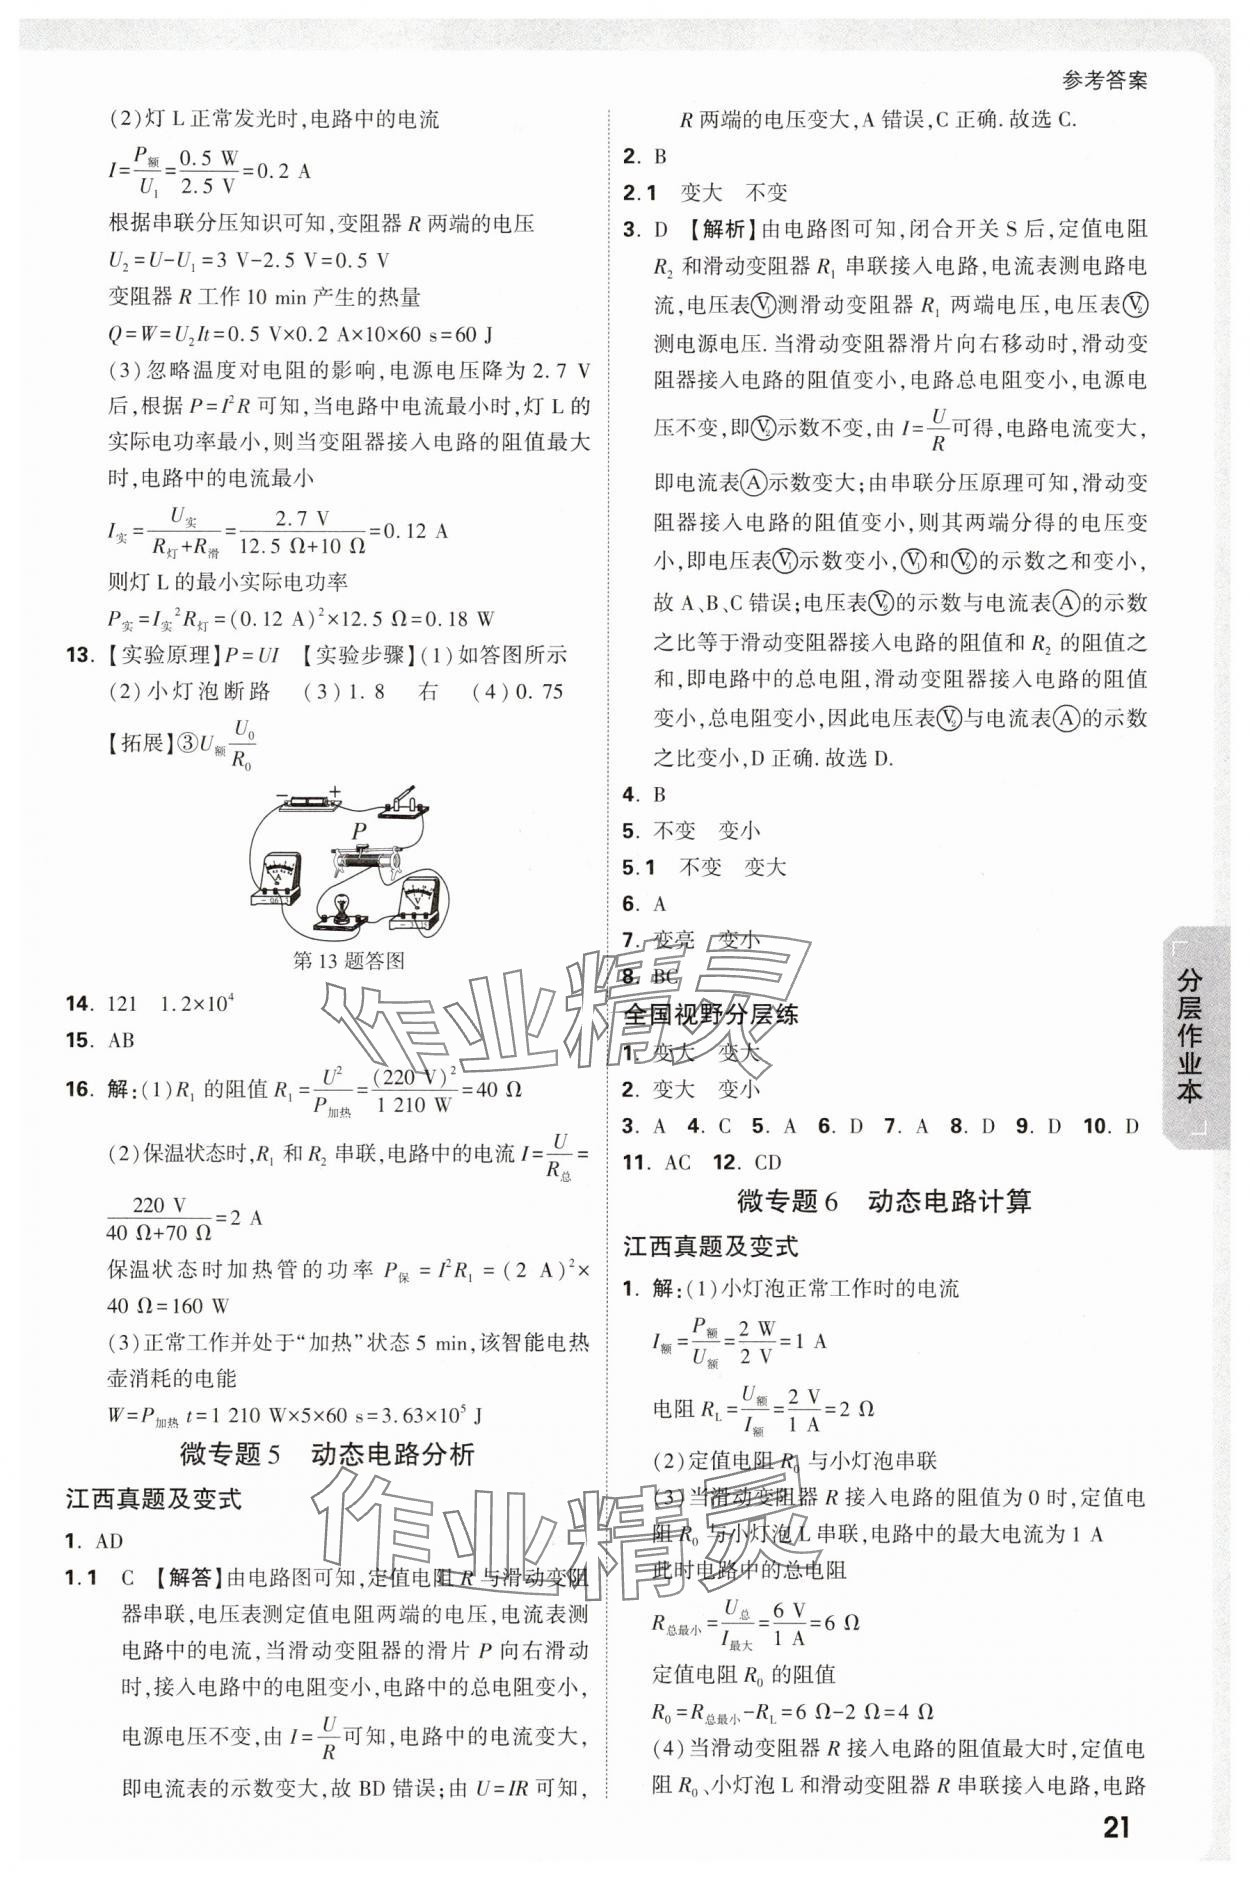 参考答案
(2)灯 L 正常发光时,电路中的电流
I=P额/U₁=0.5 W/2.5 V=0.2 A
根据串联分压知识可知,变阻器 R 两端的电压
U₂=U-U₁=3 V-2.5 V=0.5 V
变阻器 R 工作 10 min 产生的热量
Q=W=U₂It=0.5 V×0.2 A×10×60 s=60 J
(3)忽略温度对电阻的影响,电源电压降为 2.7 V
后,根据 P=I²R 可知,当电路中电流最小时,灯 L 的
实际电功率最小,则当变阻器接入电路的阻值最大
时,电路中的电流最小
I实=U实/(R灯+R滑)=2.7 V/(12.5 Ω+10 Ω)=0.12 A
则灯 L 的最小实际电功率
P实=I实²R灯=(0.12 A)²×12.5 Ω=0.18 W
13. 【实验原理】P=UI 【实验步骤】(1)如答图所示
(2)小灯泡断路 (3)1.8 右 (4)0.75
【拓展】③U额U₀/R₀
- +
P
A
V
第 13 题答图
14. 121 1.2×10⁴
15. AB
16. 解:(1)R₁ 的阻值 R₁=U²/P加热=(220 V)²/1 210 W=40 Ω
(2)保温状态时,R₁ 和 R₂ 串联,电路中的电流 I=U/R总=
220 V/(40 Ω+70 Ω)=2 A
保温状态时加热管的功率 P保=I²R₁=(2 A)²×
40 Ω=160 W
(3)正常工作并处于“加热”状态 5 min,该智能电热
壶消耗的电能
W=P加热 t=1 210 W×5×60 s=3.63×10⁵ J
微专题 5 动态电路分析
江西真题及变式
1. AD
1.1 C 【解答】由电路图可知,定值电阻 R 与滑动变阻
器串联,电压表测定值电阻两端的电压,电流表测
电路中的电流,当滑动变阻器的滑片 P 向右滑动
时,接入电路中的电阻变小,电路中的总电阻变小,
电源电压不变,由 I=U/R可知,电路中的电流变大,
即电流表的示数变大,故 BD 错误;由 U=IR 可知,
R 两端的电压变大,A 错误,C 正确.故选 C.
2. B
2.1 变大 不变
3. D 【解析】由电路图可知,闭合开关 S 后,定值电阻
R₂ 和滑动变阻器 R₁ 串联接入电路,电流表测电路电
流,电压表Ⓥ₁测滑动变阻器 R₁ 两端电压,电压表Ⓥ₂
测电源电压.当滑动变阻器滑片向右移动时,滑动变
阻器接入电路的阻值变小,电路总电阻变小,电源电
压不变,即Ⓥ₂示数不变,由 I=U/R可得,电路电流变大,
即电流表Ⓐ示数变大;由串联分压原理可知,滑动变
阻器接入电路的阻值变小,则其两端分得的电压变
小,即电压表Ⓥ₁示数变小,Ⓥ₁和Ⓥ₂的示数之和变小,
故 A、B、C 错误;电压表Ⓥ₂的示数与电流表Ⓐ的示数
之比等于滑动变阻器接入电路的阻值和 R₂ 的阻值之
和,即电路中的总电阻,滑动变阻器接入电路的阻值
变小,总电阻变小,因此电压表Ⓥ₂与电流表Ⓐ的示数
之比变小,D 正确.故选 D.
4. B
5. 不变 变小
5.1 不变 变大
6. A
7. 变亮 变小
8. BC
全国视野分层练
1. 变大 变大
2. 变大 变小
3. A 4. C 5. A 6. D 7. A 8. D 9. D 10. D
11. AC 12. CD
微专题 6 动态电路计算
江西真题及变式
1. 解:(1)小灯泡正常工作时的电流
I额=P额/U额=2 W/2 V=1 A
电阻 R_L=U额/I额=2 V/1 A=2 Ω
(2)定值电阻 R₀ 与小灯泡串联
(3)当滑动变阻器 R 接入电路的阻值为 0 时,定值电
阻 R₀ 与小灯泡 L 串联,电路中的最大电流为 1 A
此时电路中的总电阻
R总最小=U总/I最大=6 V/1 A=6 Ω
定值电阻 R₀ 的阻值
R₀=R总最小-R_L=6 Ω-2 Ω=4 Ω
(4)当滑动变阻器 R 接入电路的阻值最大时,定值电
阻 R₀、小灯泡 L 和滑动变阻器 R 串联接入电路,电路
分层作业本
21
作业精灵
作业精灵